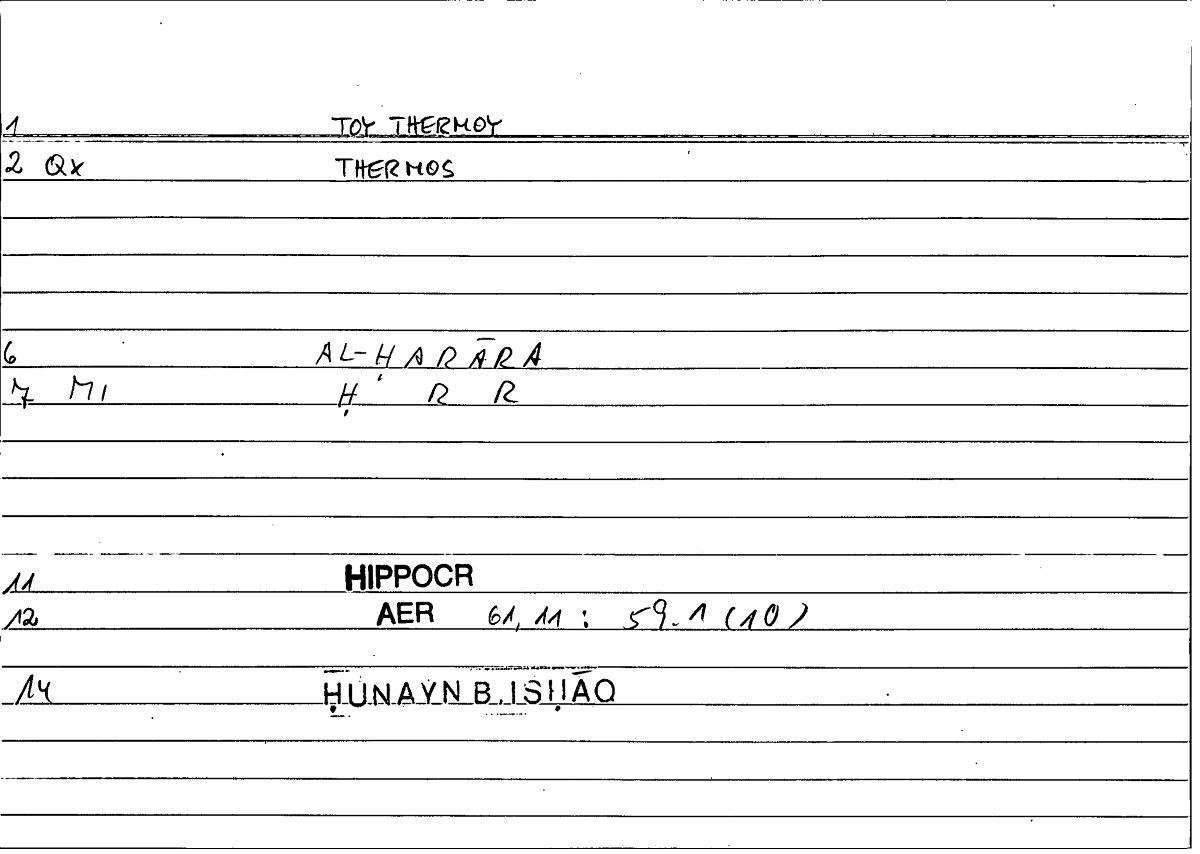 1 TOY THERMOY
2 Qx THERMOS
6 AL-ḤARĀRA
7 MI Ḥ R R
11 HIPPOCR
12 AER 61,11 : 59.1 (10)
14 ḤUNAYN B. ISḤĀQ